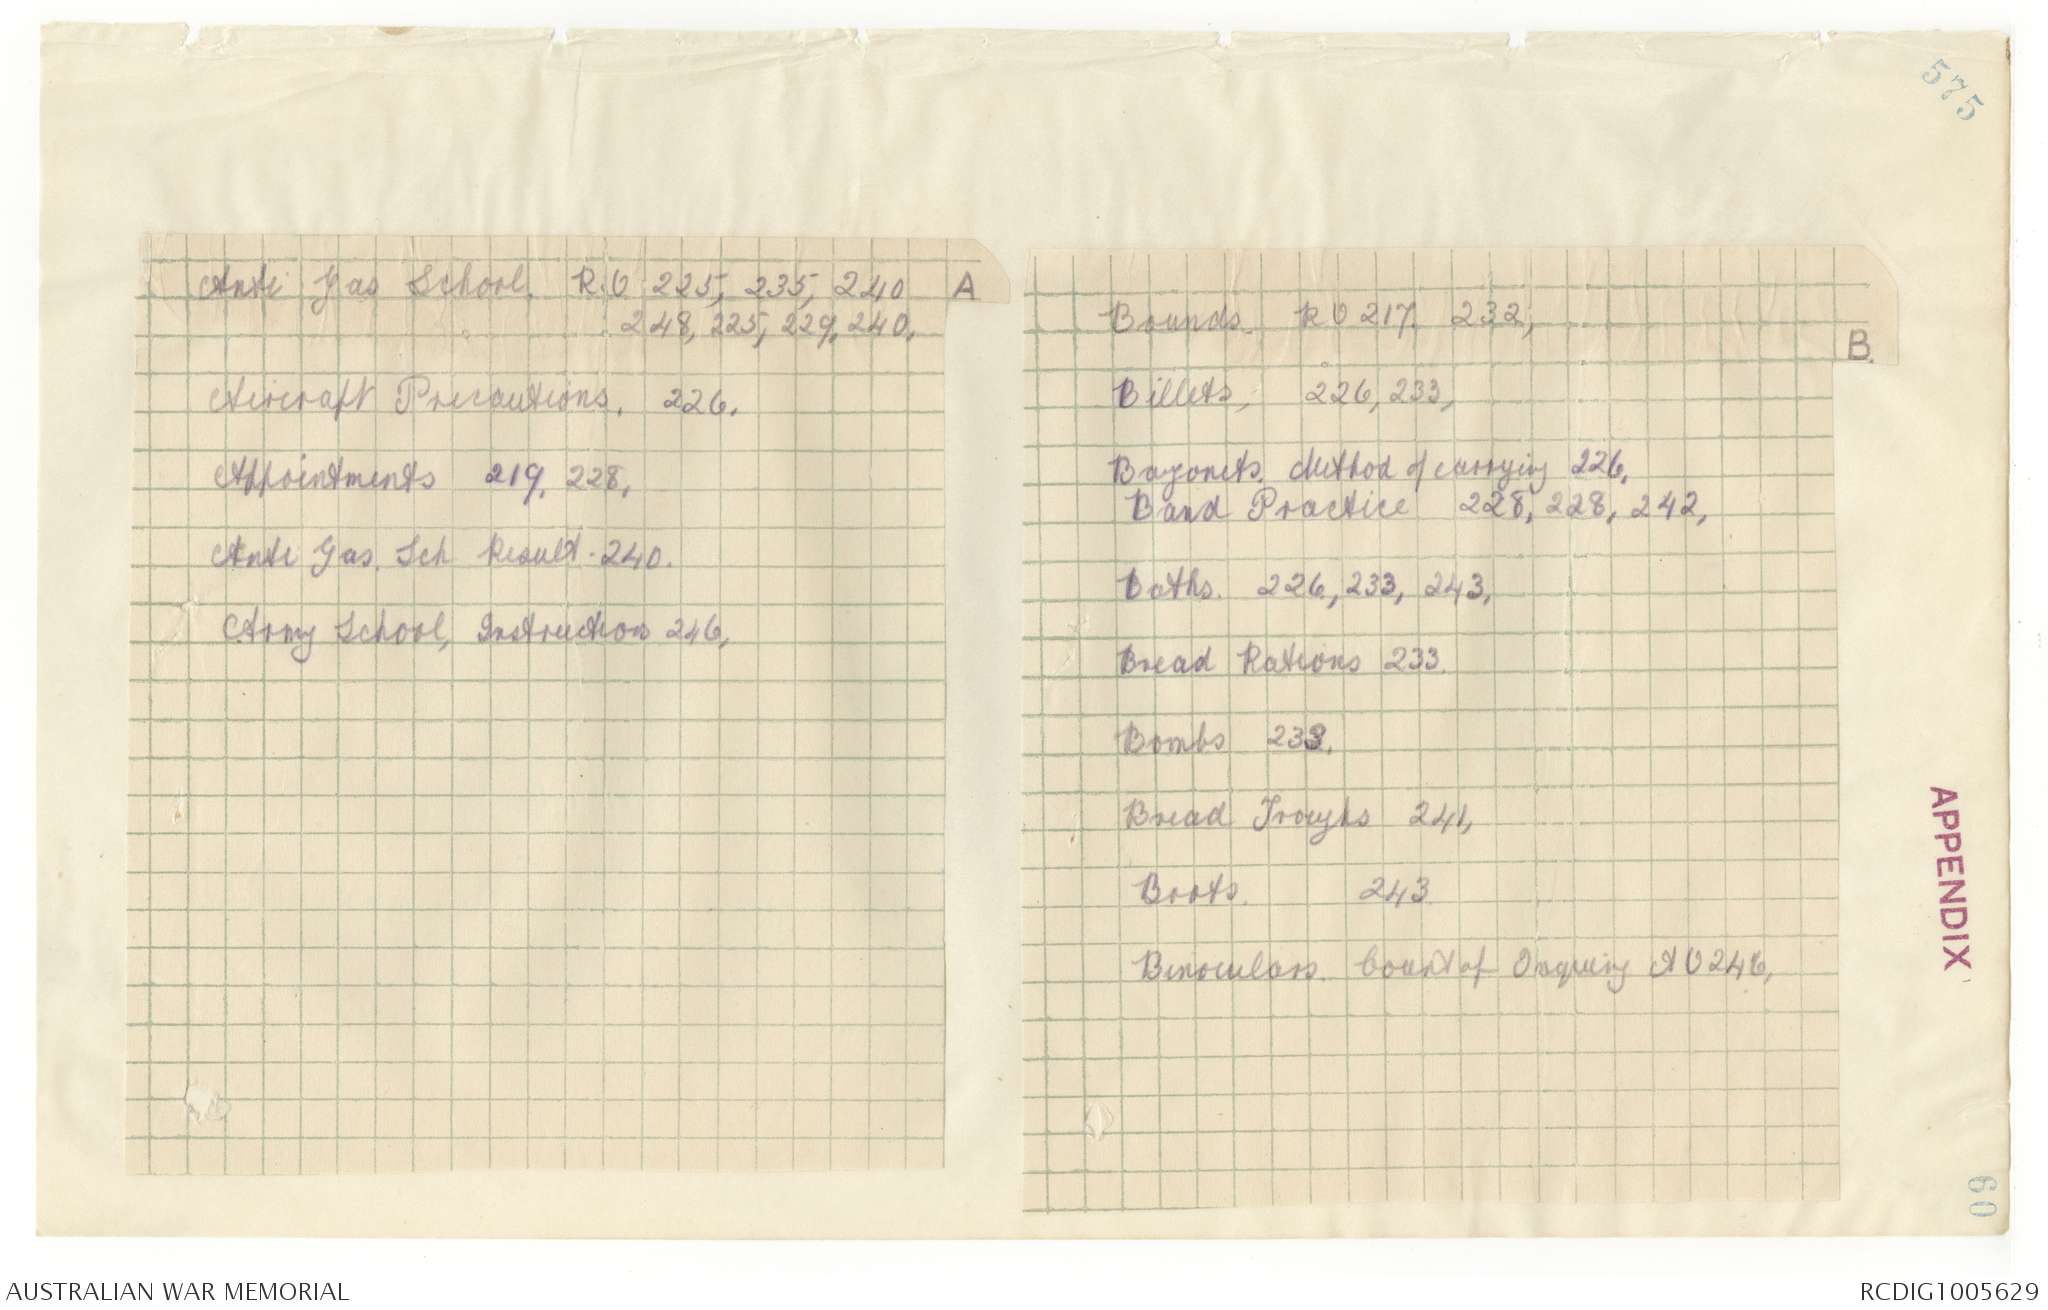 575
Anti Gas School. R.O 225, 235, 240
248, 225, 229, 240.
A
Aircraft Precautions. 226.
Appointments 219, 228,
Anti Gas. Sch Result - 240.
Army School, Instruction 246,
Bounds. R O 217. 232,
B.
Billets, 226, 233,
Bayonets. Method of carrying 226,
Band Practice 228, 228, 242,
Baths. 226, 233, 243,
Bread Rations 233.
Bombs 233.
Bread Troughs 241,
Boots. 243
Binoculars. Court of Inquiry A O 246,
APPENDIX
60
AUSTRALIAN WAR MEMORIAL
RCDIG1005629